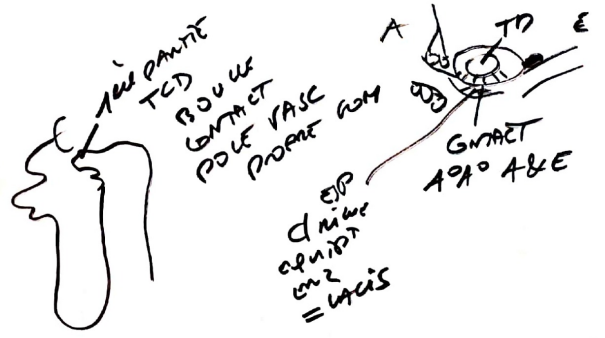 1ère PARTIE
TCD
BOUCLE
CONTACT
POLE VASC
PROPRE GLOM
A
TD
E
CONTACT
A°A° A&E
ESP
= LACIS